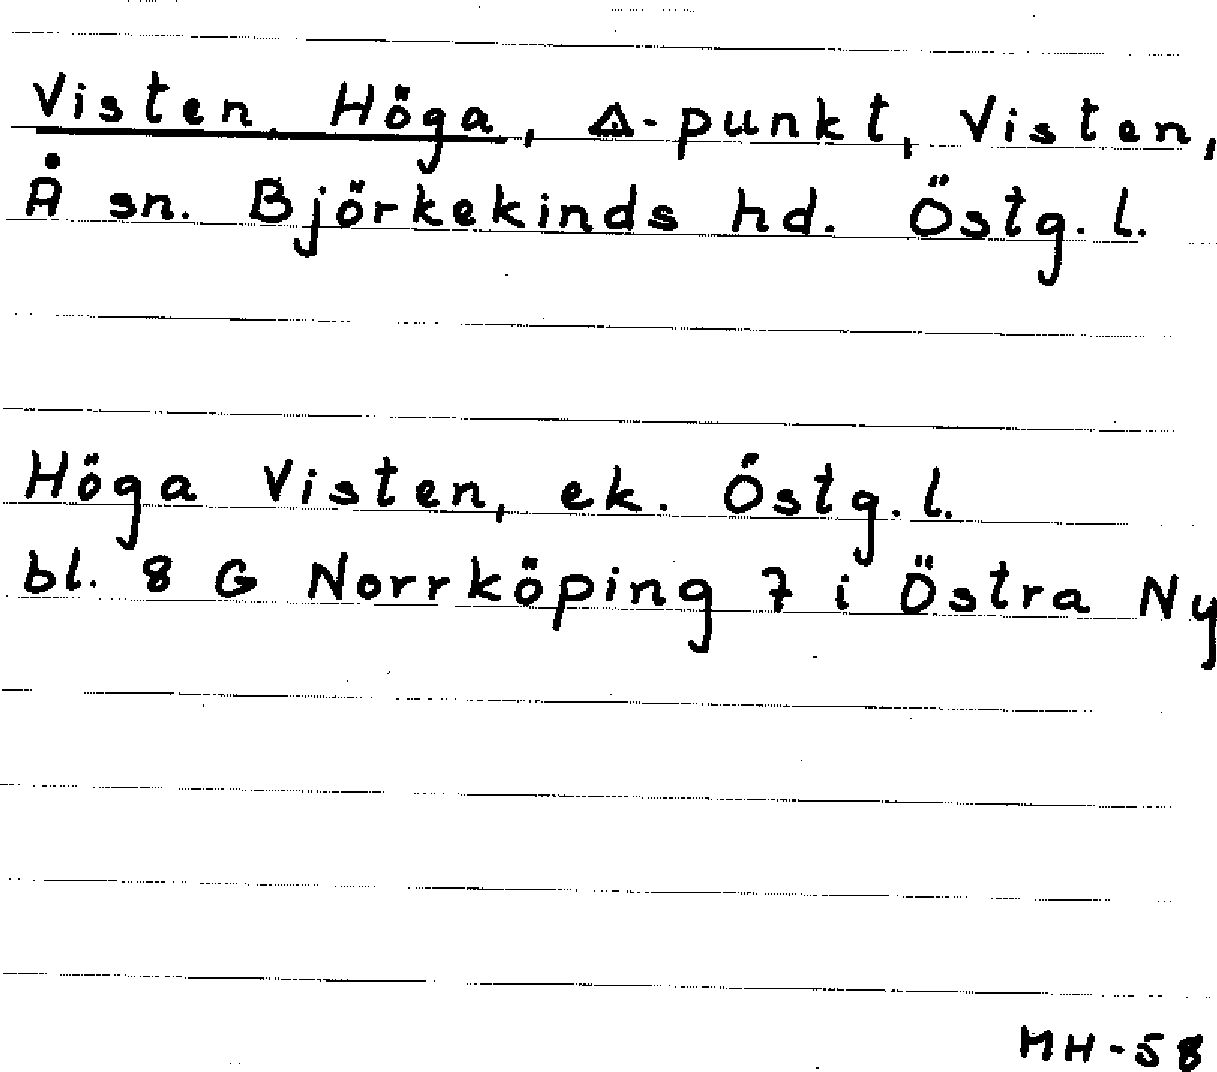 Visten Höga, Δ-punkt, Visten,
Å sn. Björkekinds hd. Östg. l.
Höga Visten, ek. Östg. l.
bl. 8 G Norrköping 7 i Östra Ny
MH-58